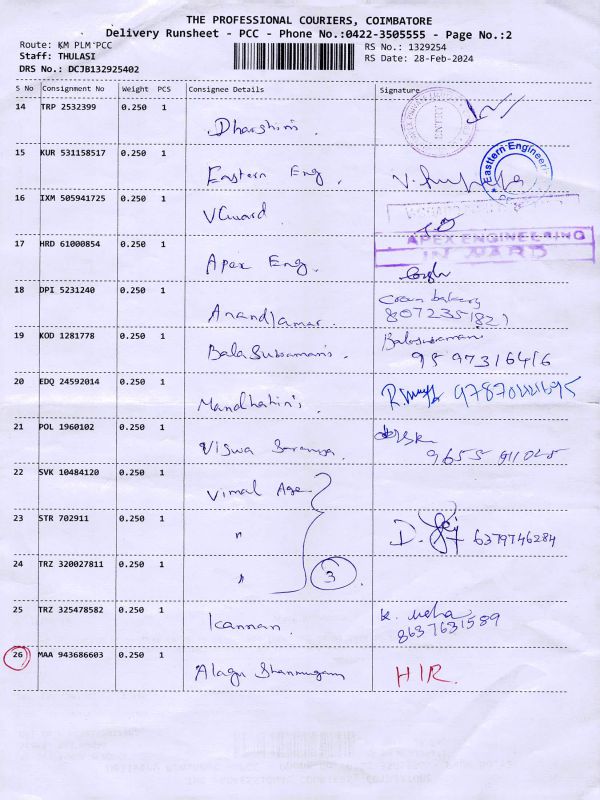 THE PROFESSIONAL COURIERS, COIMBATORE
Delivery Runsheet - PCC - Phone No.:0422-3505555 - Page No.:2
Route: KM PLM PCC
RS No.: 1329254
Staff: THULASI
RS Date: 28-Feb-2024
DRS No.: DCJB132925402
S No Consignment No Weight PCS Consignee Details Signature
14 TRP 2532399 0.250 1
Dharshini.
ENTRY
15 KUR 531158517 0.250 1
Eastern Eng.
Easttern Engineer
16 IXM 505941725 0.250 1
VGuard
17 HRD 61000854 0.250 1
APEX ENGINEERING
INWARD
Apex Eng.
18 DPI 5231240 0.250 1
Anandlamar.
bakery
8072351821
19 KOD 1281778 0.250 1
Balasubramani
BalaSubramani's.
95 97316416
20 EDQ 24592014 0.250 1
21 POL 1960102 0.250 1
Viswa
9655 911025
22 SVK 10484120 0.250 1
Vimal Age
23 STR 702911 0.250 1
"
D. 6379746284
24 TRZ 320027811 0.250 1
"
3
25 TRZ 325478582 0.250 1
Kannan.
K. Usha
8637631589
26 MAA 943686603 0.250 1
Alagu Shanmugam
HIR.